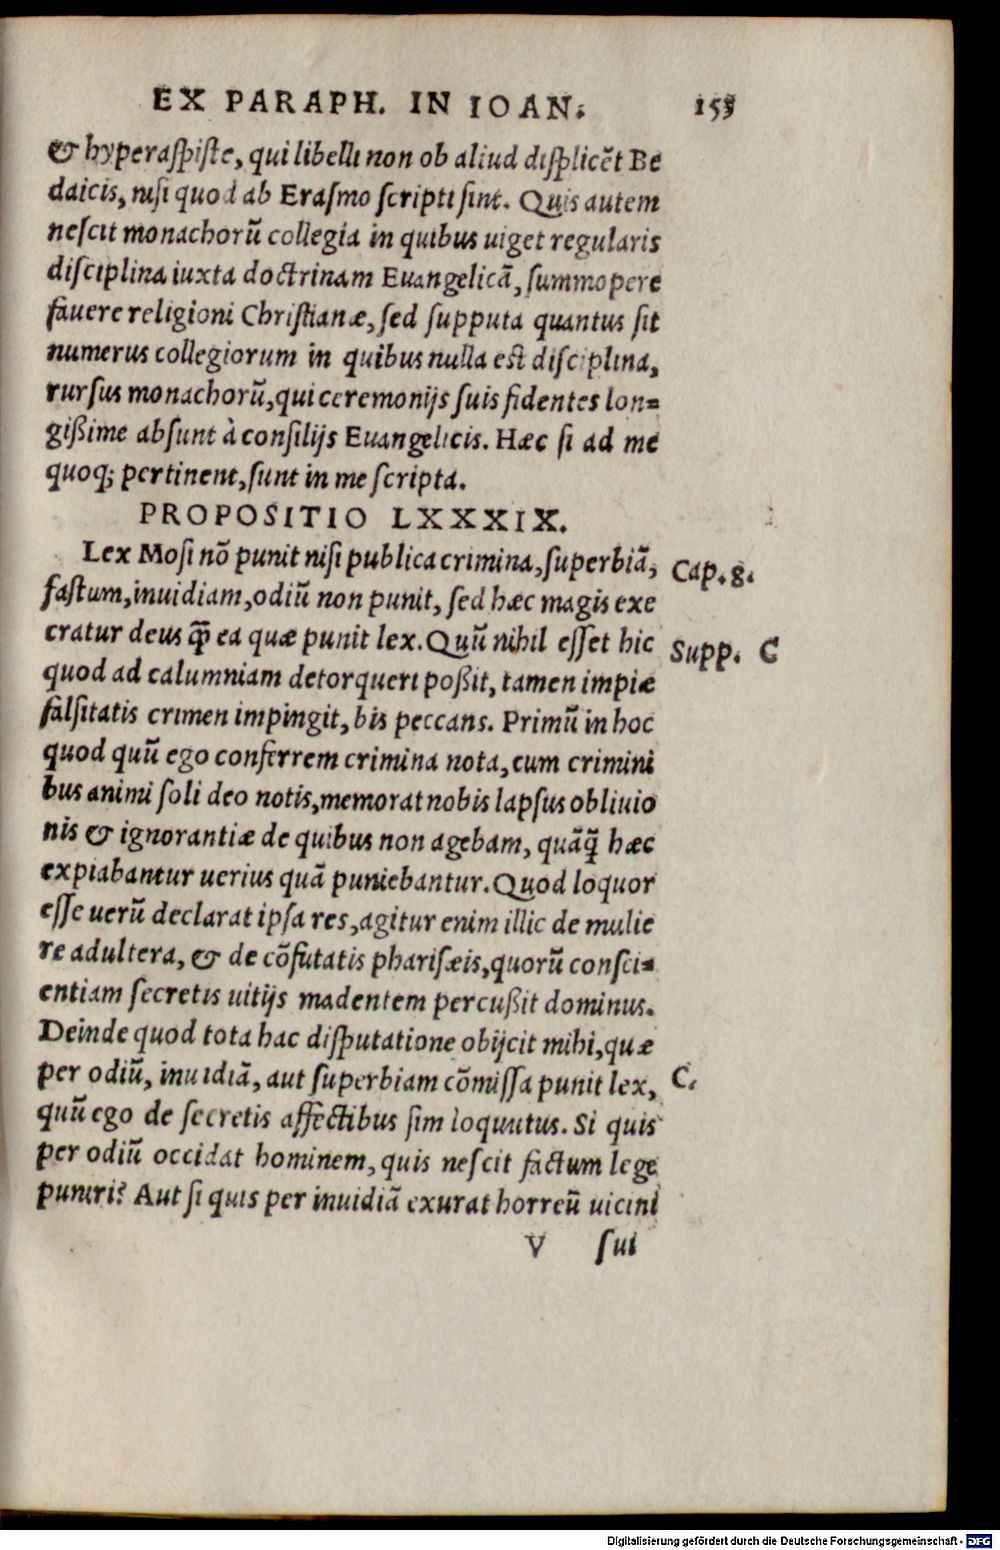 EX PARAPH. IN IOAN. 153
& hyperaſpiſte, qui libelli non ob aliud diſplicēt Be
daicis, niſi quod ab Eraſmo ſcripti ſint. Quis autem
neſcit monachorū collegia in quibus uiget regularis
diſciplina iuxta doctrinam Euangelicā, ſummopere
fauere religioni Chriſtianæ, ſed ſupputa quantus ſit
numerus collegiorum in quibus nulla est diſciplina,
rurſus monachorū, qui ceremonijs ſuis fidentes lon=
gißime abſunt à conſilijs Euangelicis. Hæc ſi ad me
quoq; pertinent, ſunt in me ſcripta.
PROPOSITIO LXXXIX.
Lex Moſi nō punit niſi publica crimina, ſuperbiā, Cap. 8.
faſtum, inuidiam, odiū non punit, ſed hæc magis exe
cratur deus ꝙ̃ ea quæ punit lex. Quū nihil eſſet hic Supp. C
quod ad calumniam detorqueri poßit, tamen impiæ
falſitatis crimen impingit, bis peccans. Primū in hoc
quod quū ego conferrem crimina nota, cum crimini
bus animi ſoli deo notis, memorat nobis lapſus obliuio
nis & ignorantiæ de quibus non agebam, quāq̃ hæc
expiabantur uerius quā puniebantur. Quod loquor
eſſe uerū declarat ipſa res, agitur enim illic de mulie
re adultera, & de cōfutatis phariſæis, quorū conſci=
entiam ſecretis uitijs madentem percußit dominus.
Deinde quod tota hac diſputatione obijcit mihi, quæ
per odiū, inuidiā, aut ſuperbiam cōmiſſa punit lex, C.
quū ego de ſecretis affectibus ſim loquutus. Si quis
per odiū occidat hominem, quis neſcit factum lege
puniri? Aut ſi quis per inuidiā exurat horreū uicini
V ſui
Digitalisierung gefördert durch die Deutsche Forschungsgemeinschaft - DFG